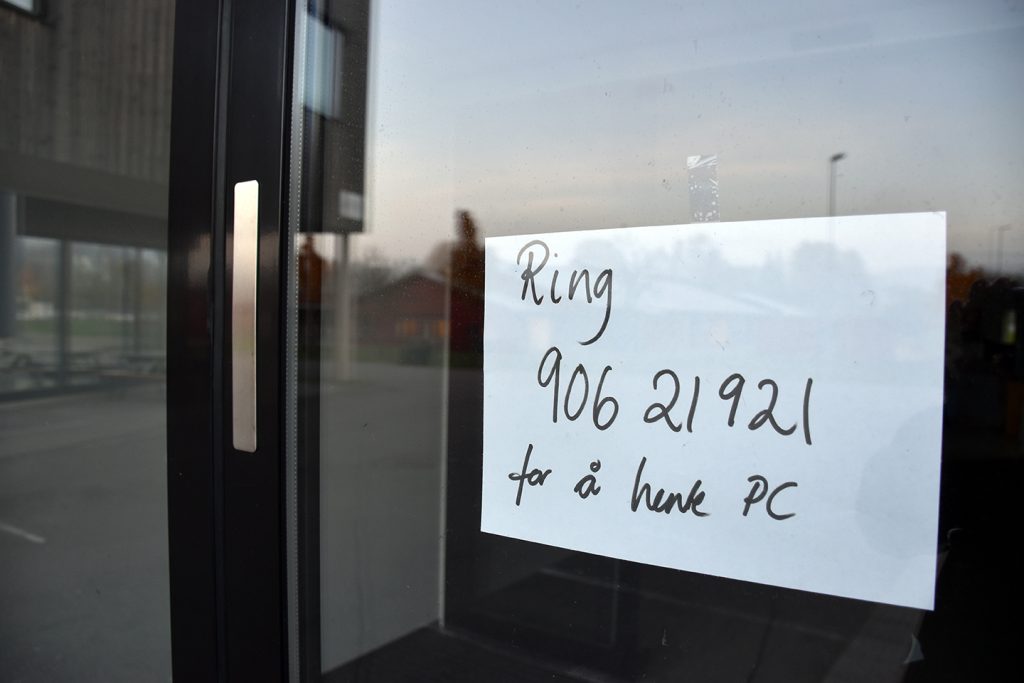 Ring
906 21921
for å hente PC